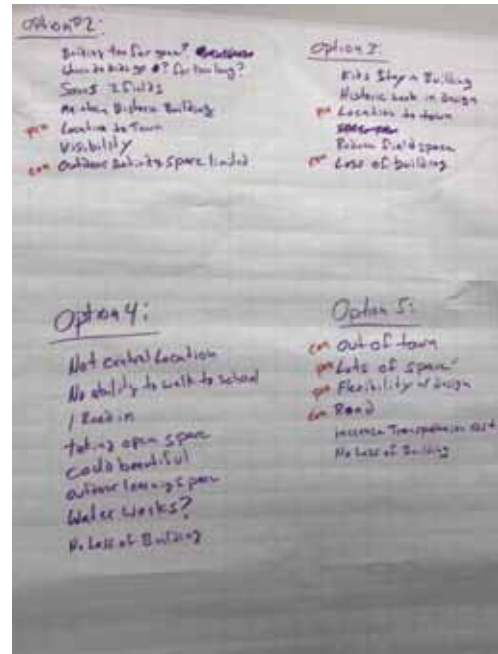 Option #2:
Building too far gone?
Where do kids go #? for how long?
Saves 2 fields
Maintain Historic Building
pro Location to Town
Visibility
con Outdoor Activity space limited
Option 3:
Kids Stay in Building
Historic look in design
pro Location to town
Return Field space
con Loss of building
Option 4:
Not central Location
No ability to walk to school
1 Road in
taking open space
could beautiful
outdoor learning space
Water works?
No Loss of Building
Option 5:
con Out of town
pro Lots of space
pro Flexibility w/ design
con Road
increase Transportation cost
No Loss of Building